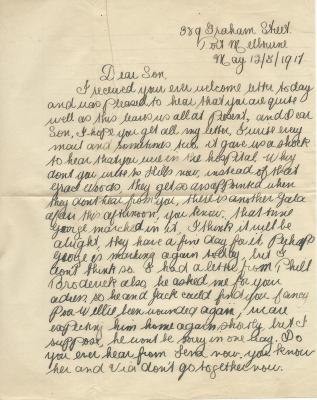 329 Graham Street
Port Melbourne
May 13/8/1917
Dear Son,
I received your ever welcome letter today
and was pleased to hear that you are quite
well as this leaves us all at present, and Dear
Son, I hope you get all my letter, I write every
mail and sometimes two it gave us a shock
to hear that you were in the hospital. Why
don't you write to Stella now, instead of that
Grace Woods, they get so disappointed when
they don't hear from you, there is another Gala
again this afternoon, you know, that time
George marched in it, I think it will be
alright, they have a fine day for it. Perhaps
George is marching again today, but I
don't think so. I had a letter from Phill
Broderick also he asked me for your
adress so he and Jack could find you fancy
Poor Willie been wounded again, we are
expecting him home again shortly, but I
suppose, he wont be sorry in one way. Do
you ever hear from now, you know
her and Vera don't go together now.